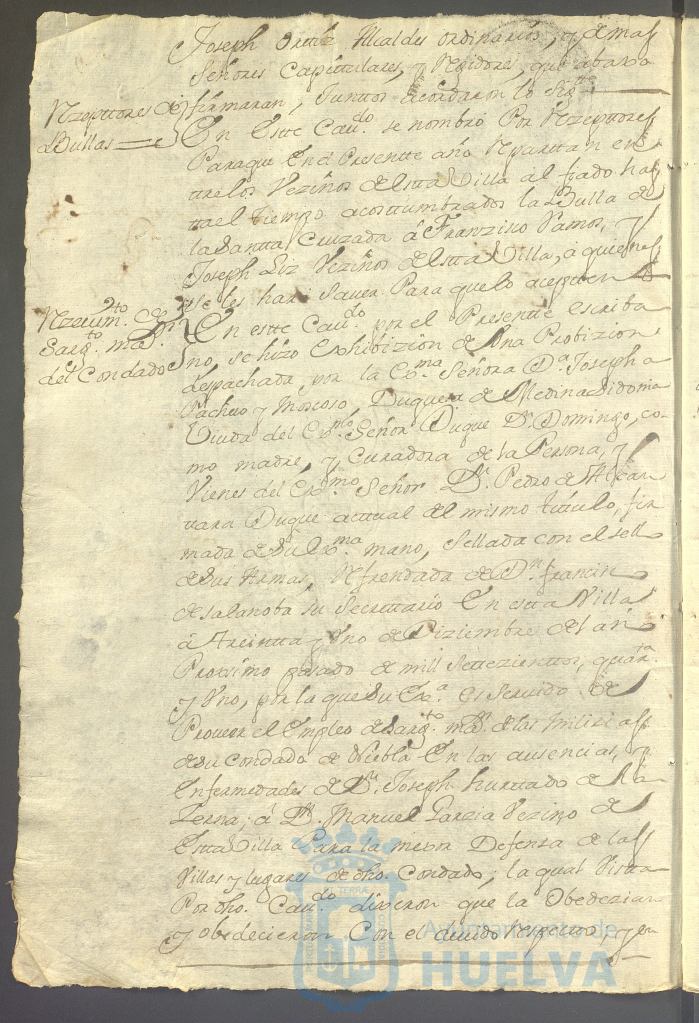 Joseph Ortiz Alcaldes ordinarios, y demas
Señores Capittulares, y Rejidores, que abaxo
firmaran, Junttos acordaron lo Sigte
Rzepttores de
Bullas
En Estte Caudo se nombró Por Rzepttores
Paraque En el Presentte año Reparttan en
ttre los Vezinos de Estta Villa al fiado has
tta el tiempo acosttumbrados la Bulla de
la Santta Cruzada á Franzisco Ramos, y
Joseph Liz Vezinos de Estta Villa, á quienes
se les hara Saver Para que lo azepten
Rzeuimto de
Sargto mor
del Condado
En estte Caudo por el Presentte escriba
no, se hizo Exhibizion de Una Probizion
despachada, por la Exma Señora Da Josepha
Pacheco y Moscoso, Duquesa de Medina Sidonia
Viuda del Exmo Señor Duque Dn Domingo, co-
mo madre, y Curadora de la Persona, y
Vienes del Exmo Señor Dn Pedro de Alcan
ttara Duque actual del mismo títtulo, fir
mada de Su Exma mano, Sellada con el sello
de Sus Armas, Refrendada de Dn
de Salanoba su Secrettario En estta Villa
á Treintta y Uno de Diziembre del año
Proximo pasado de mill Settezienttos, quarta
y Uno, por la que Su Exa es Servido de
Proveer el Empleo de Sargto mor de las Milizias
de su Condado de Niebla En las ausencias, y
Enfermedades de Dn Joseph hurttado de
á Dn Manuel Garzia Vezino de
Estta Villa Para la mexor Defenza de las
Villas y lugares de dho Condado; la qual Vistta
Por dho Caudo dixeron que la Obedezian
y obedecieron Con el deuido respectto, y en
Ayuntamiento de
HUELVA